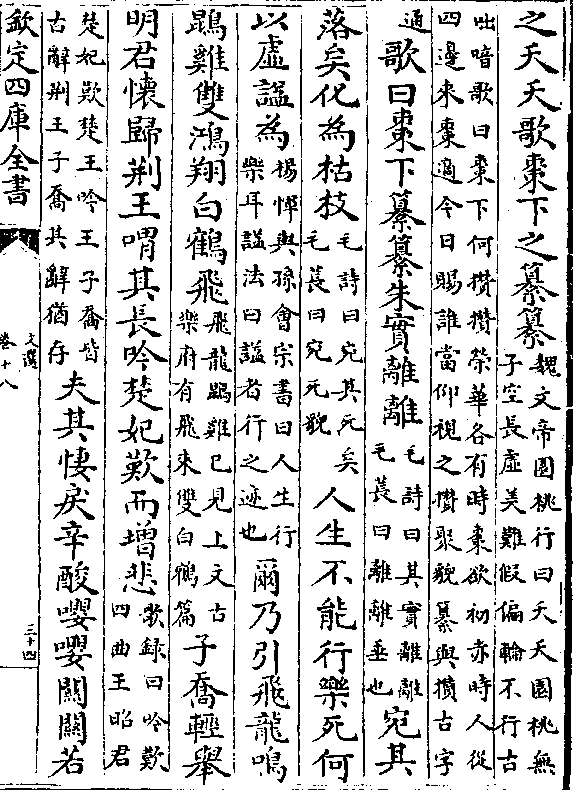 之夭夭歌棗下之纂纂
魏文帝園桃行曰夭夭園桃無
子空長虛美難假偏輪不行古
咄唶歌曰棗下何攢攢榮華各有時棗欲初赤時人從
四邊來棗適今日賜誰當仰視之攢聚貌纂與攢古字
通
歌曰棗下纂纂朱實離離
毛詩曰其實離離
毛萇曰離離垂也
宛其
落矣化為枯枝
毛詩曰宛其死矣
毛萇曰宛死貌
人生不能行樂死何
以虛諡為
楊惲與孫會宗書曰人生行
樂耳諡法曰諡者行之迹也
爾乃引飛龍鳴
鵾雞雙鴻翔白鶴飛
飛龍鵾雞已見上文古
樂府有飛來雙白鶴篇
子喬輕舉
明君懷歸荆王喟其長吟楚妃歎而增悲
歌録曰吟歎
四曲王昭君
楚妃歎楚王吟王子喬皆
古辭荆王子喬其辭猶存
夫其悽戾辛酸嚶嚶關關若
欽定四庫全書
文選
卷十八
三十四